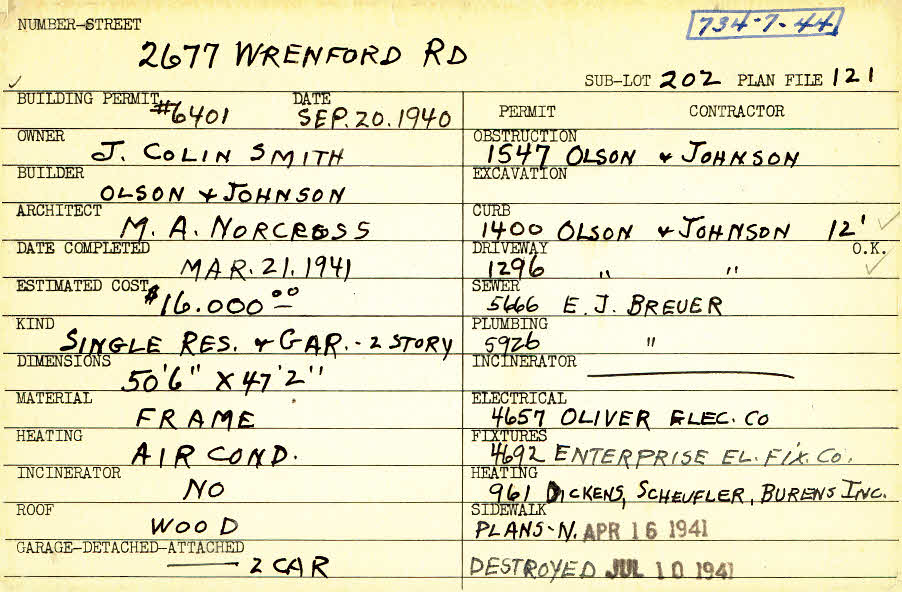 NUMBER-STREET
734-7-44
2677 WRENFORD RD
SUB-LOT 202 PLAN FILE 121
BUILDING PERMIT #6401 DATE SEP. 20. 1940
PERMIT CONTRACTOR
OWNER J. COLIN SMITH
OBSTRUCTION 1547 OLSON & JOHNSON
BUILDER OLSON & JOHNSON
EXCAVATION
ARCHITECT M. A. NORCROSS
CURB 1400 OLSON & JOHNSON 12'
DATE COMPLETED MAR. 21. 1941
DRIVEWAY 1296 " " O.K.
ESTIMATED COST $16.000 00
SEWER 5666 E. J. BREUER
KIND SINGLE RES. & GAR. - 2 STORY
PLUMBING 5926 "
DIMENSIONS 50'6" X 47'2"
INCINERATOR
MATERIAL FRAME
ELECTRICAL 4657 OLIVER ELEC. CO
HEATING AIR COND.
FIXTURES 4692 ENTERPRISE EL. FIX. CO.
INCINERATOR NO
HEATING 961 DICKENS, SCHEUFLER, BURENS INC.
ROOF WOOD
SIDEWALK PLANS-N. APR 16 1941
GARAGE-DETACHED-ATTACHED 2 CAR
DESTROYED JUL 10 1941